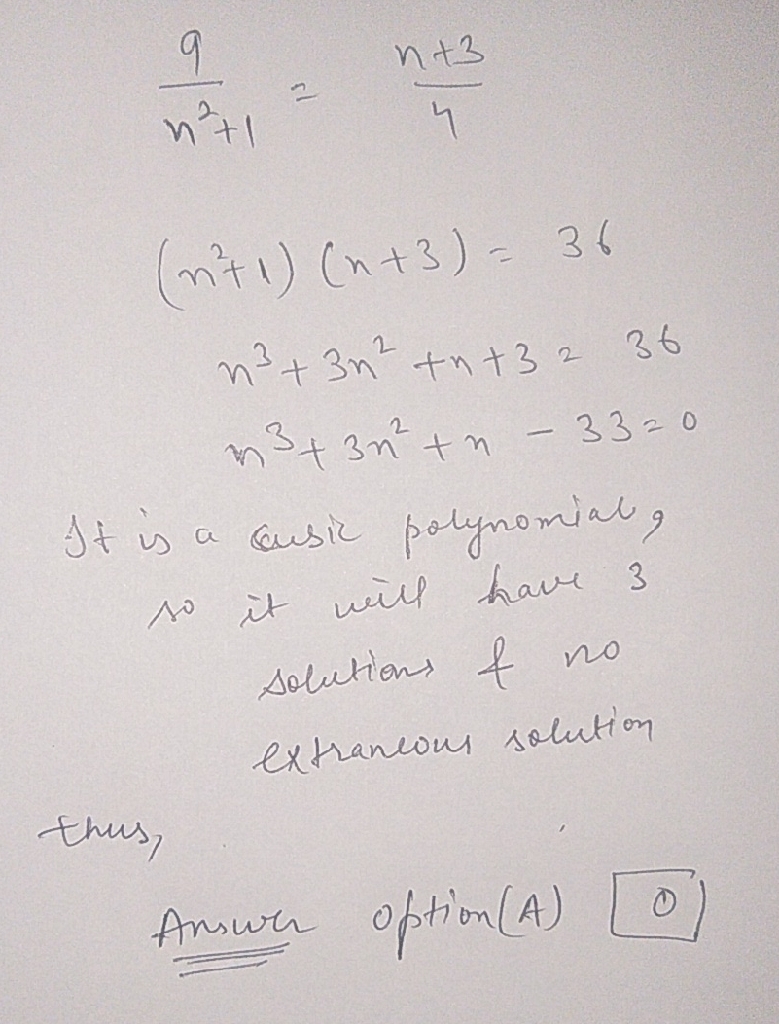 9/(n²+1) = (n+3)/4
(n²+1) (n+3) = 36
n³ + 3n² + n + 3 = 36
n³ + 3n² + n - 33 = 0
It is a cusic polynomial,
so it will have 3
solutions & no
extraneous solution
thus,
Answer option (A) 0